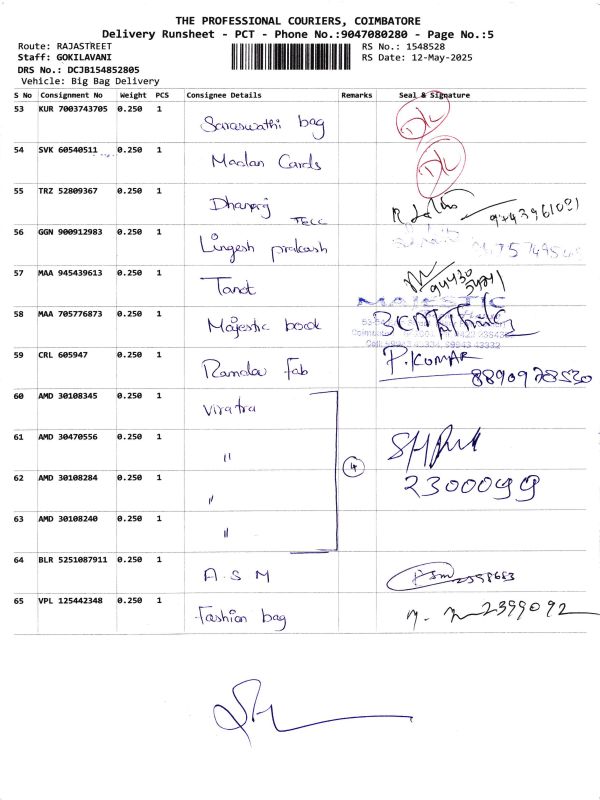 THE PROFESSIONAL COURIERS, COIMBATORE
Delivery Runsheet - PCT - Phone No.:9047080280 - Page No.:5
Route: RAJASTREET
Staff: GOKILAVANI
DRS No.: DCJB154852805
Vehicle: Big Bag Delivery
RS No.: 1548528
RS Date: 12-May-2025
S No Consignment No Weight PCS Consignee Details Remarks Seal & Signature
53 KUR 7003743705 0.250 1 Saraswathi bag
54 SVK 60540511 0.250 1 Madan Cards
55 TRZ 52809367 0.250 1 Dhanraj
56 GGN 900912983 0.250 1 Lingesh prakash
57 MAA 945439613 0.250 1 Tanot
58 MAA 705776873 0.250 1 Majestic book MAJESTIC
59 CRL 605947 0.250 1 Ramdev Fab P. KUMAR
8890978530
60 AMD 30108345 0.250 1 Viratra
61 AMD 30470556 0.250 1 "
62 AMD 30108284 0.250 1 " 4 2300099
63 AMD 30108240 0.250 1 "
64 BLR 5251087911 0.250 1 A.S.M
65 VPL 125442348 0.250 1 Fashion bag 2399092